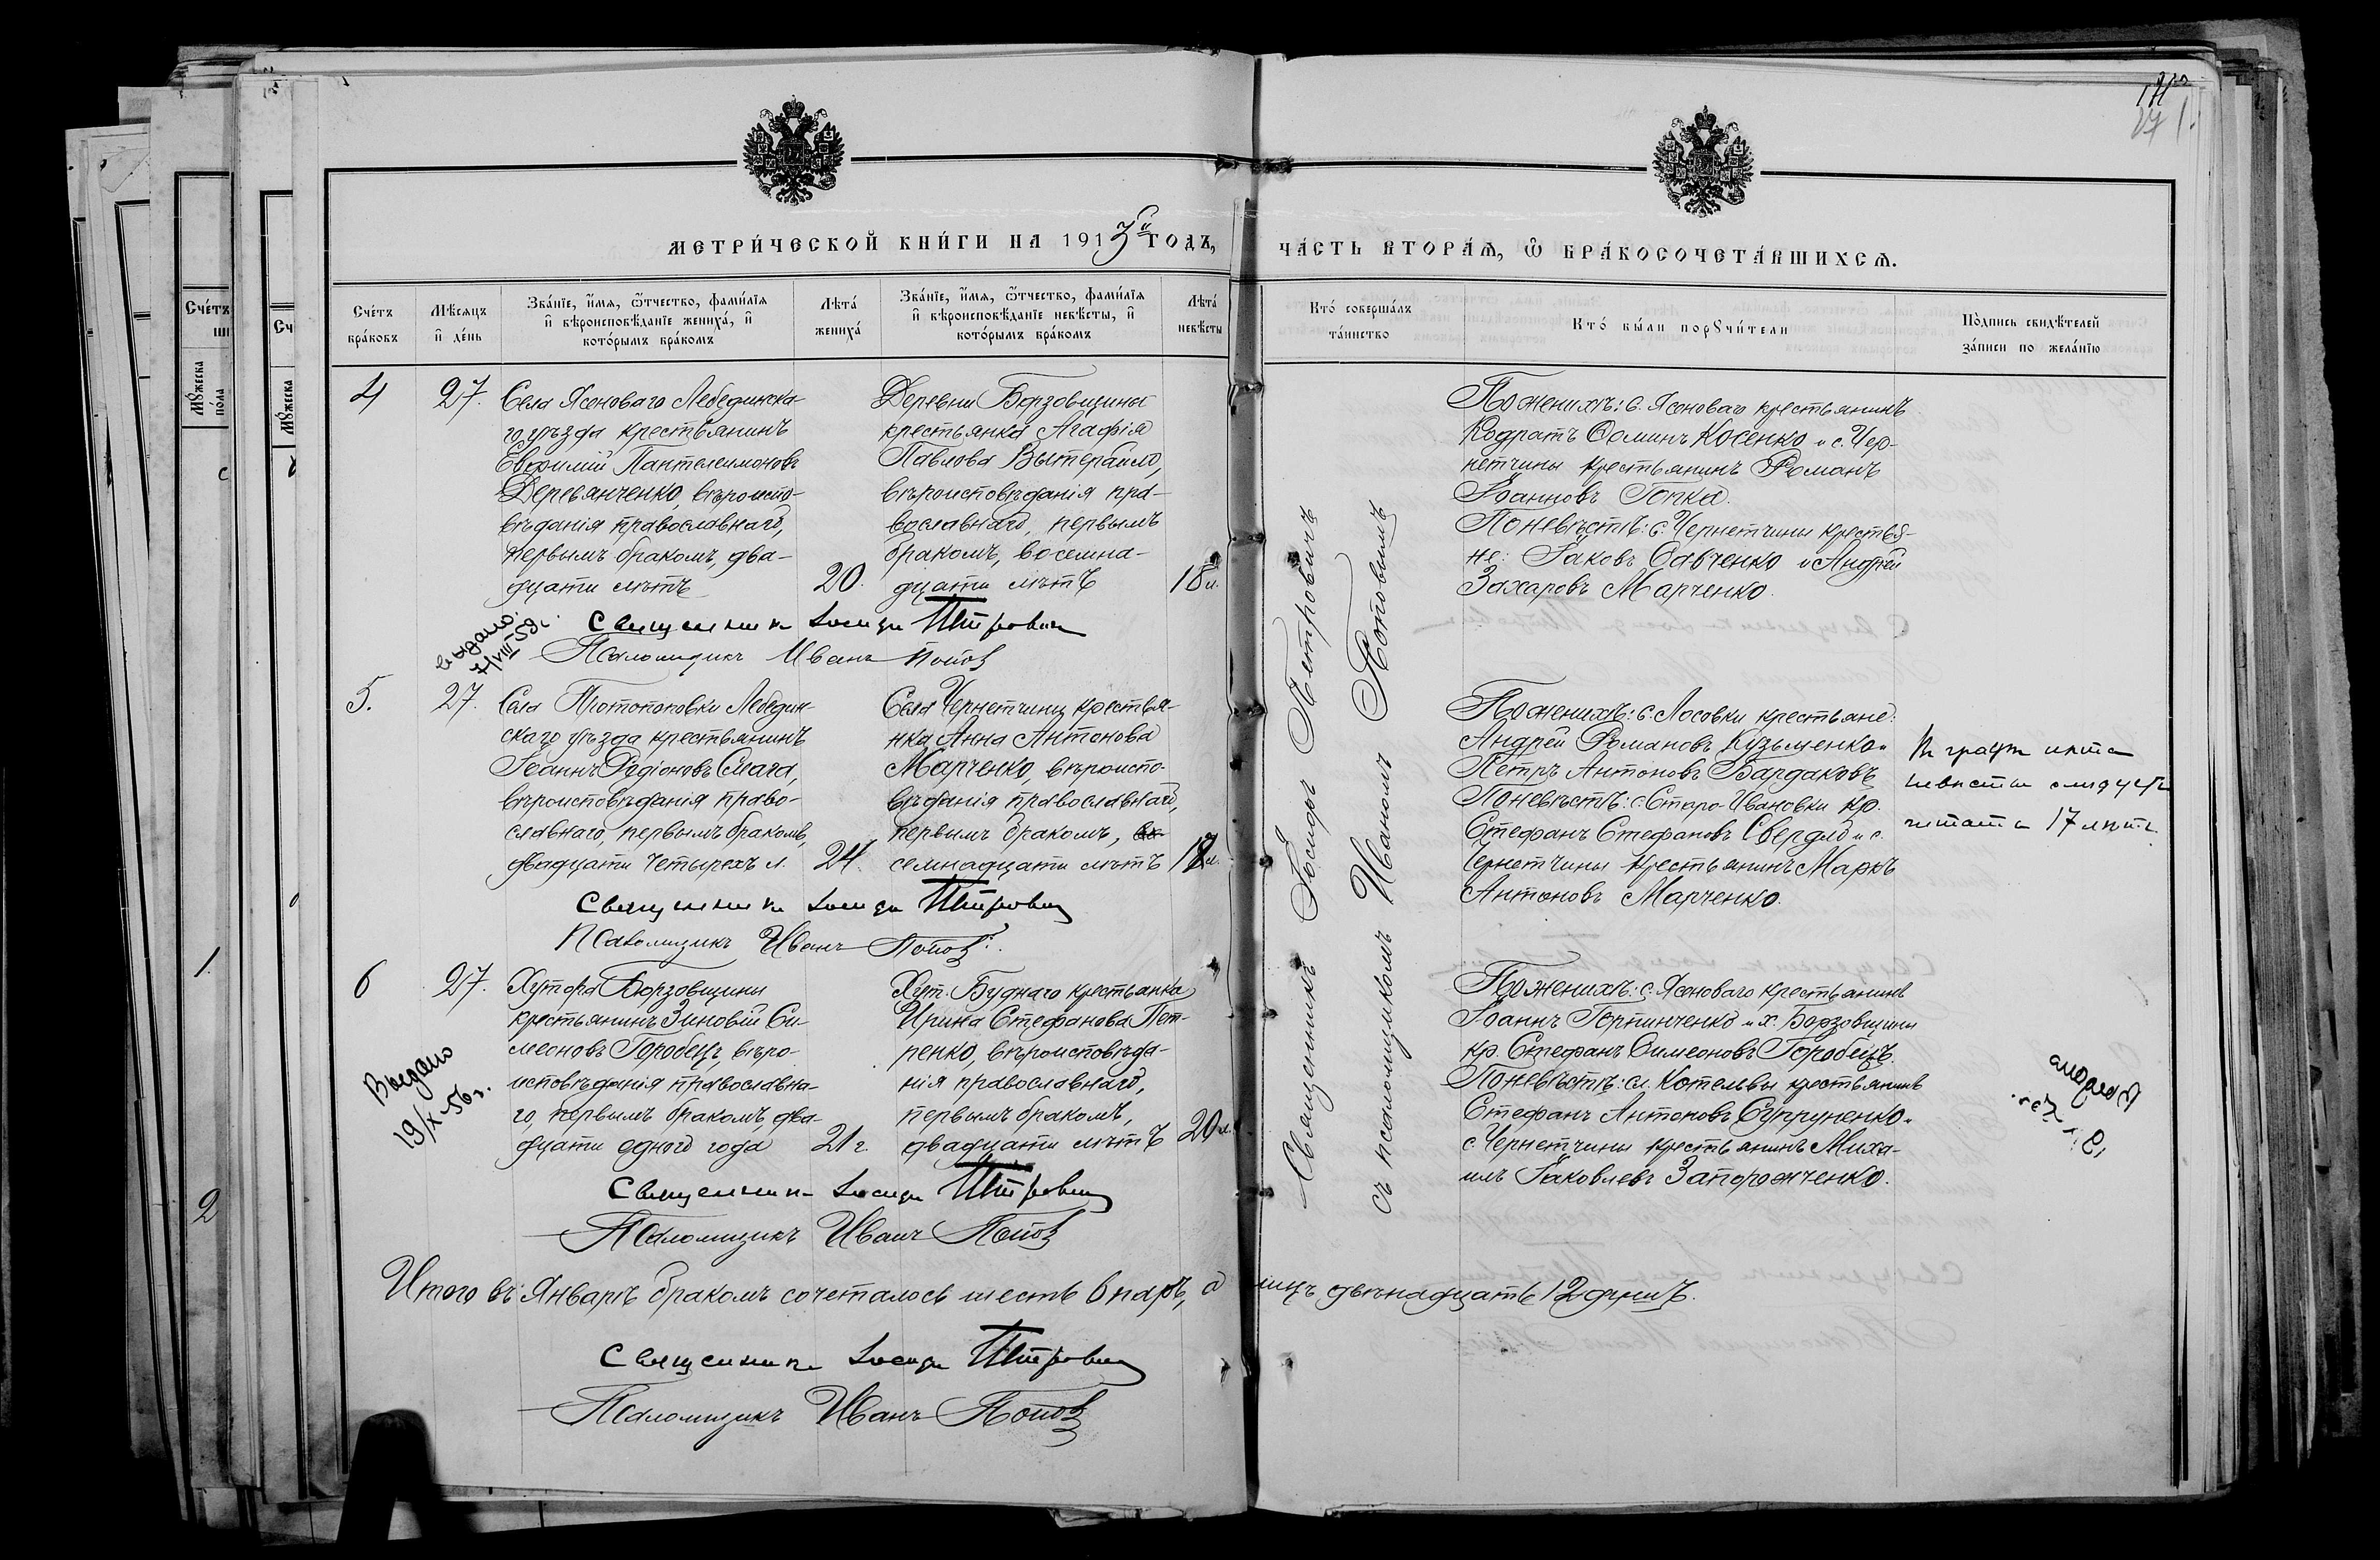 171
27 1.
МЕТРИ́ЧЕСКОЙ КНИ́ГИ НА 1913й ГОДЪ,
ЧА́СТЬ ВТОРА́Ѧ, Ѡ҆ БРА́КОСОЧЕТА́ВШИХСѦ.
Сче́тъ бра́ковъ
Мѣ́сѧцъ и҆ де́нь
Зва́нїе, и҆́мѧ, ѿтчество, фами́лїѧ и҆ вѣроисповѣ́данїе жениха́, и҆ кото́рымъ бра́комъ
Лѣта́ жениха́
Зва́нїе, и҆́мѧ, ѿтчество, фами́лїѧ и҆ вѣроисповѣ́данїе невѣ́сты, и҆ кото́рымъ бра́комъ
Лѣта́ невѣ́сты
Кто́ соверша́лъ та́инство
Кто́ бы́ли порꙋчи́тели
По́дпись свидѣ́телей за́писи по жела́нїю
4
27.
Села Ясеноваго Лебединска-
го уѣзда крестьянинъ
Евфимій Пантелеимоновъ
Деревянченко, вѣроиспо-
вѣданія православнаго,
первымъ бракомъ, два-
дцати лѣтъ
20.
Деревни Борзовщины
крестьянка Агафія
Павлова Вытерайло,
вѣроисповѣданія пра-
вославнаго, первымъ
бракомъ, восемна-
дцати лѣтъ
18 л.
По женихѣ: с. Ясеноваго крестьянинъ
Кодратъ Ѳоминъ Косенко и с. Чер-
нетчины крестьянинъ Романъ
Іоанновъ Гопка.
По невѣстѣ: с. Чернетчины крестья-
не: Іаковъ Савченко и Андрей
Захаровъ Марченко.
выдано.
7/VIII 59 г.
Священникъ Іосифъ Петровичъ
Псаломщикъ Иванъ Поповъ
5.
27.
Села Протопоповки Лебедин-
скаго уѣзда крестьянинъ
Іоаннъ Родіоновъ Смага,
вѣроисповѣданія право-
славнаго, первымъ бракомъ,
двадцати четырехъ л.
24.
Села Чернетчины крестья-
нка Анна Антонова
Марченко, вѣроиспо-
вѣданія православнаго,
первымъ бракомъ,
семнадцати лѣтъ
17 л.
По женихѣ: с. Лосовки крестьяне:
Андрей Романовъ Кузьменко и
Петръ Антоновъ Бардаковъ
По невѣстѣ: с. Старо-Ивановки кр.
Стефанъ Стефановъ Свердло и с.
Чернетчины крестьянинъ Маркъ
Антоновъ Марченко.
Въ графѣ лѣта
невѣсты слѣдуетъ
читать 17 лѣтъ
Священникъ Іосифъ Петровичъ
Псаломщикъ Иванъ Поповъ.
6
27.
Хутора Борзовщины
крестьянинъ Зиновій Си-
меоновъ Горобецъ, вѣро-
исповѣданія православна-
го, первымъ бракомъ, два-
дцати одного года
21 г.
Хут. Буднаго крестьянка
Ирина Стефанова Пет-
ренко, вѣроисповѣда-
нія православнаго,
первымъ бракомъ,
двадцати лѣтъ
20 л.
По женихѣ: с. Ясеноваго крестьянинъ
Іоаннъ Горпинченко и х. Борзовщины
кр. Стефанъ Симеоновъ Горобецъ.
По невѣстѣ: сл. Котельвы крестьянинъ
Стефанъ Антоновъ Супруненко и
с. Чернетчины крестьянинъ Миха-
илъ Іаковлевъ Запорожченко.
Выдано
19/X-56 г.
Священникъ Іосифъ Петровичъ
Псаломщикъ Иванъ Поповъ
Священникъ Іосифъ Петровичъ
съ псаломщикомъ Иваномъ Поповымъ
Итого въ Январѣ бракомъ сочеталось шесть 6 паръ, а лицъ двѣнадцать 12 душъ.
Священникъ Іосифъ Петровичъ
Псаломщикъ Иванъ Поповъ
Сче́тъ
Мꙋ́жеска по́ла
1.
2